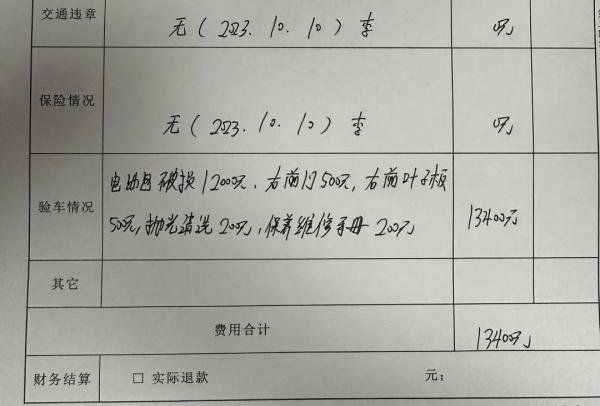 交通违章 无(2023.10.10)李 0元
保险情况 无(2023.10.10)李 0元
电动包破损12000元、右前门500元,右前叶子板
验车情况 500元,抛光清洗200元,保养维修手册200元 13400元
其它
费用合计 13400元
财务结算 □ 实际退款 元;